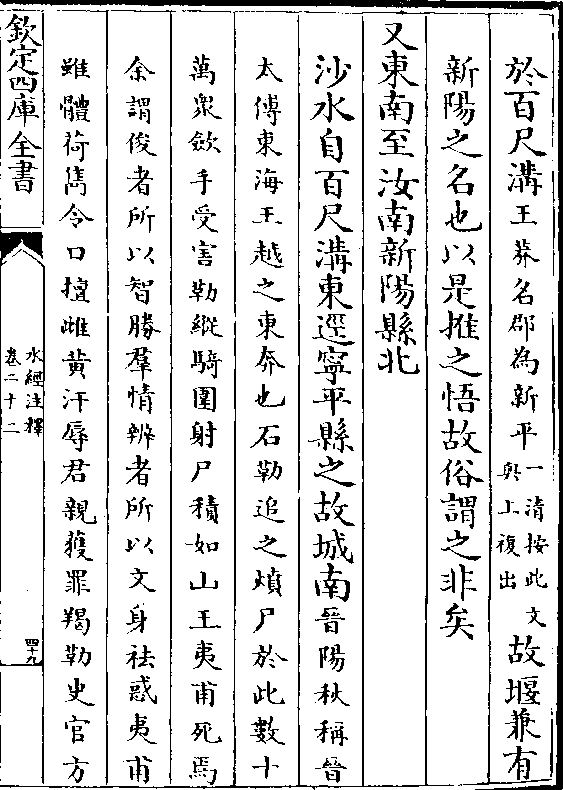 於百尺溝王莽名郡為新平一清按此文與上複出故堰兼有
新陽之名也以是推之悟故俗謂之非矣
又東南至汝南新陽縣北
沙水自百尺溝東逕寧平縣之故城南晉陽秋稱晉
太傅東海王越之東奔也石勒追之燌尸於此數十
萬衆斂手受害勒縱騎圍射尸積如山王夷甫死焉
余謂俊者所以智勝羣情辨者所以文身袪惑夷甫
雖體荷雋令口擅雌黃汙辱君親獲罪羯勒史官方
欽定四庫全書
水經注釋
卷二十二
四十九